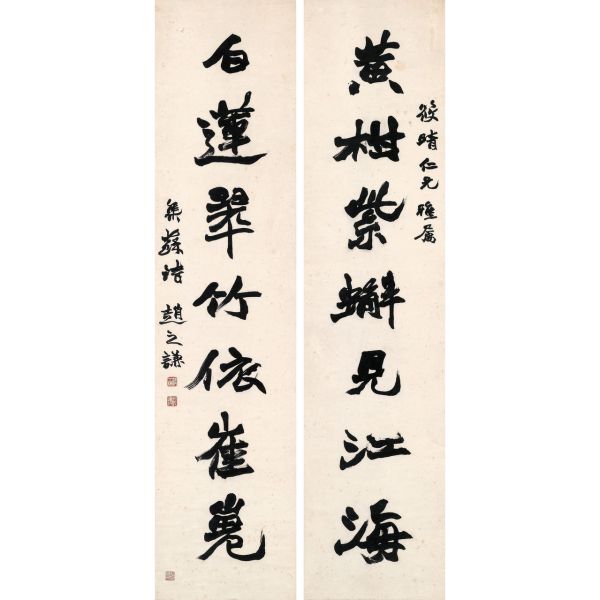 黃柑紫蠏見江海
筱晴仁兄雅屬
白蓮翠竹依崔嵬
集蘇詩 趙之謙